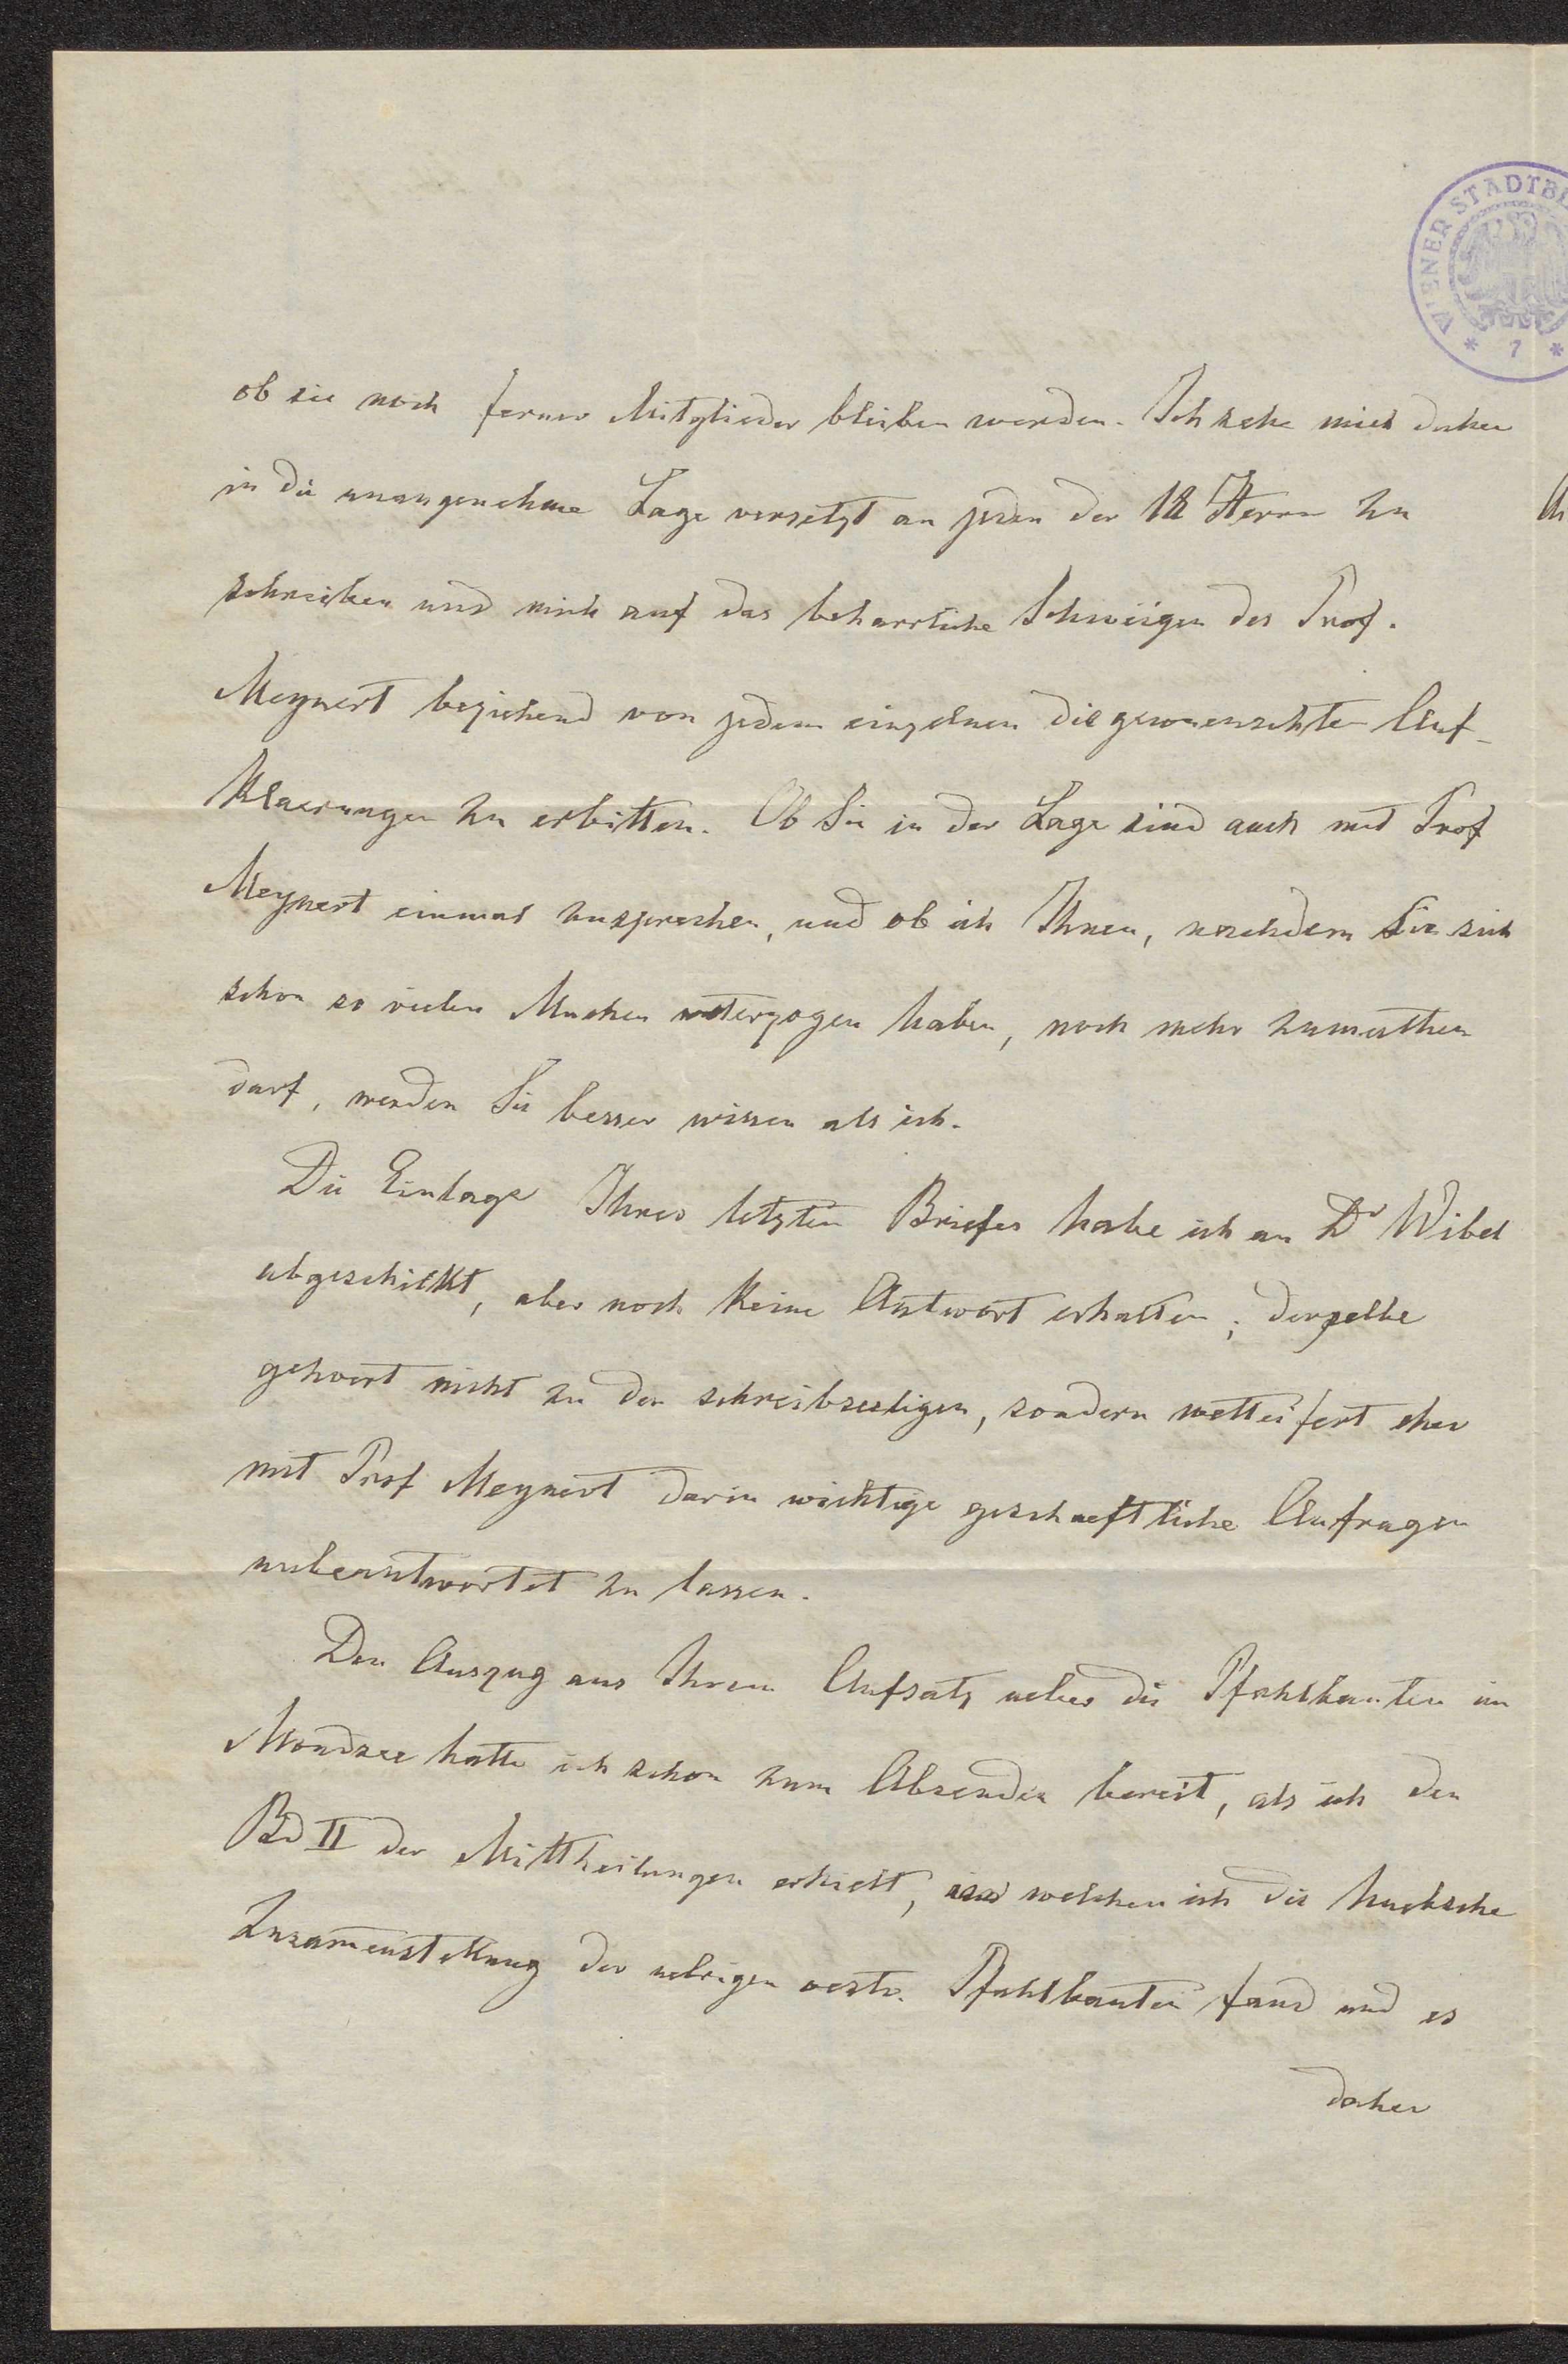 WIENER STADTB
* 7 *
ob sie noch ferner Mitglieder bleiben werden. Ich sehe mich daher
in die unangenehme Lage versetzt an jeden der 12 Herrn zu
schreiben und mich auf das beharrliche Schweigen des Prof.
Meynert beziehend von jedem einzelnen die gewuenschten Auf-
klaerungen zu erbitten. Ob Sie in der Lage sind auch mit Prof
Meynert einmal zusprechen, und ob ich Ihnen, nachdem Sie sich
schon so vielen Muehen unterzogen haben, noch mehr zumuthen
darf, werden Sie besser wissen als ich.
Die Einlage Ihres letzten Briefes habe ich an Dr Wibel
abgeschickt, aber noch keine Antwort erhalten; derselbe
gehoert nicht zu den schreibseeligen, sondern wetteifert eher
mit Prof Meynert darin wichtige geschaeftliche Anfragen
unbeantwortet zu lassen.
Den Auszug aus Ihrem Aufsatz ueber die Pfahlbauten im
Mondsee hatte ich schon zum Absenden bereit, als ich den
Bd II der Mittheilungen erhielt, in welchem ich die
Zusam̄enstellung der uebrigen oestr. Pfahlbauten fand und es
daher